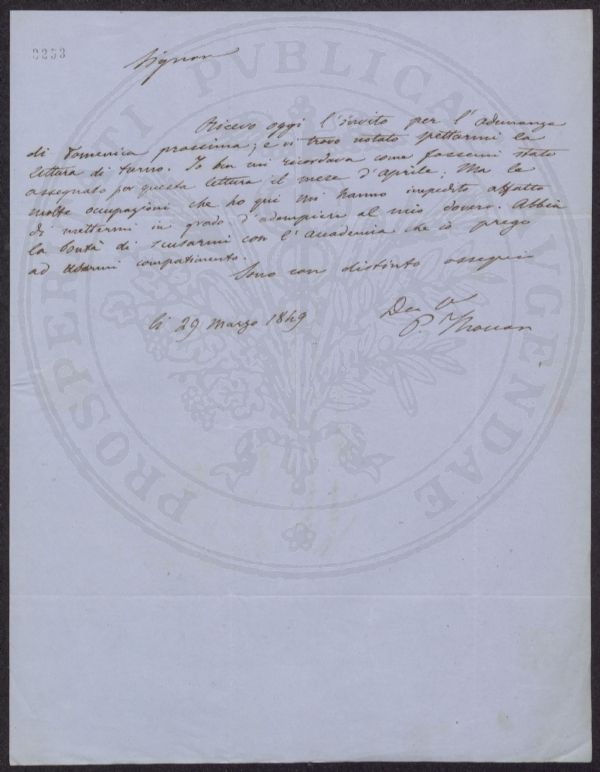 3253
Signore
Ricevo oggi l'invito per l'adunanza
di Domenica prossima; e vi trovo notato spettarmi la
lettura di turno. Io ben mi ricordava come fossemi stato
assegnato per questa lettura il mese d'Aprile; Ma le
molte occupazioni che ho qui mi hanno impedito affatto
di mettermi in grado d'adempiere al mio dovere. Abbia
la bontà di scusarmi con l'Accademia che io prego
ad usarmi compatimento.
Sono con distinto ossequio
li 29 Marzo 1849
P. Thouar
PROSPERITATI PUBLICAE AUGENDAE